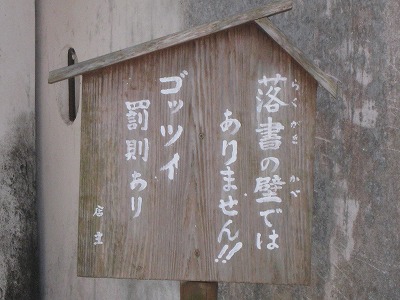 落書の壁では
らくがき かべ
ありません!!
ゴッツイ
罰則あり
店主